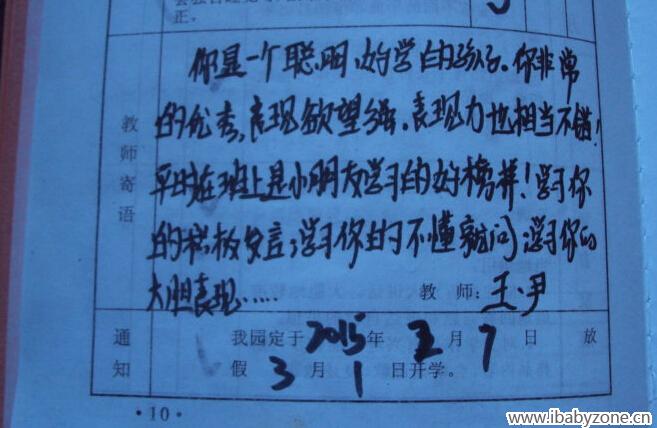 正。
你是一个聪明、好学的孩子。你非常
的优秀，表现欲望强，表现力也相当不错！
平时在班上是小朋友学习的好榜样！学习你
的积极发言；学习你的不懂就问；学习你的
大胆表现……
教师寄语
教 师：王、尹
通知
我园定于2015年2月7日放
假3月1日开学。
·10·
www.ibabyzone.cn